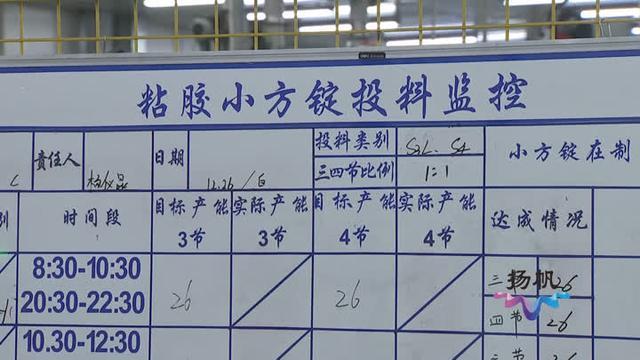 粘胶小方锭投料监控
C 责任人 日期 12.26/白 投料类别 小方锭在制
三四节比例 1:1
时间段 目标产能 实际产能 目标产能 实际产能 达成情况
3节 3节 4节 4节
8:30-10:30
20:30-22:30 26 26
三 26
扬帆
四节 26
10.30-12:30
三节